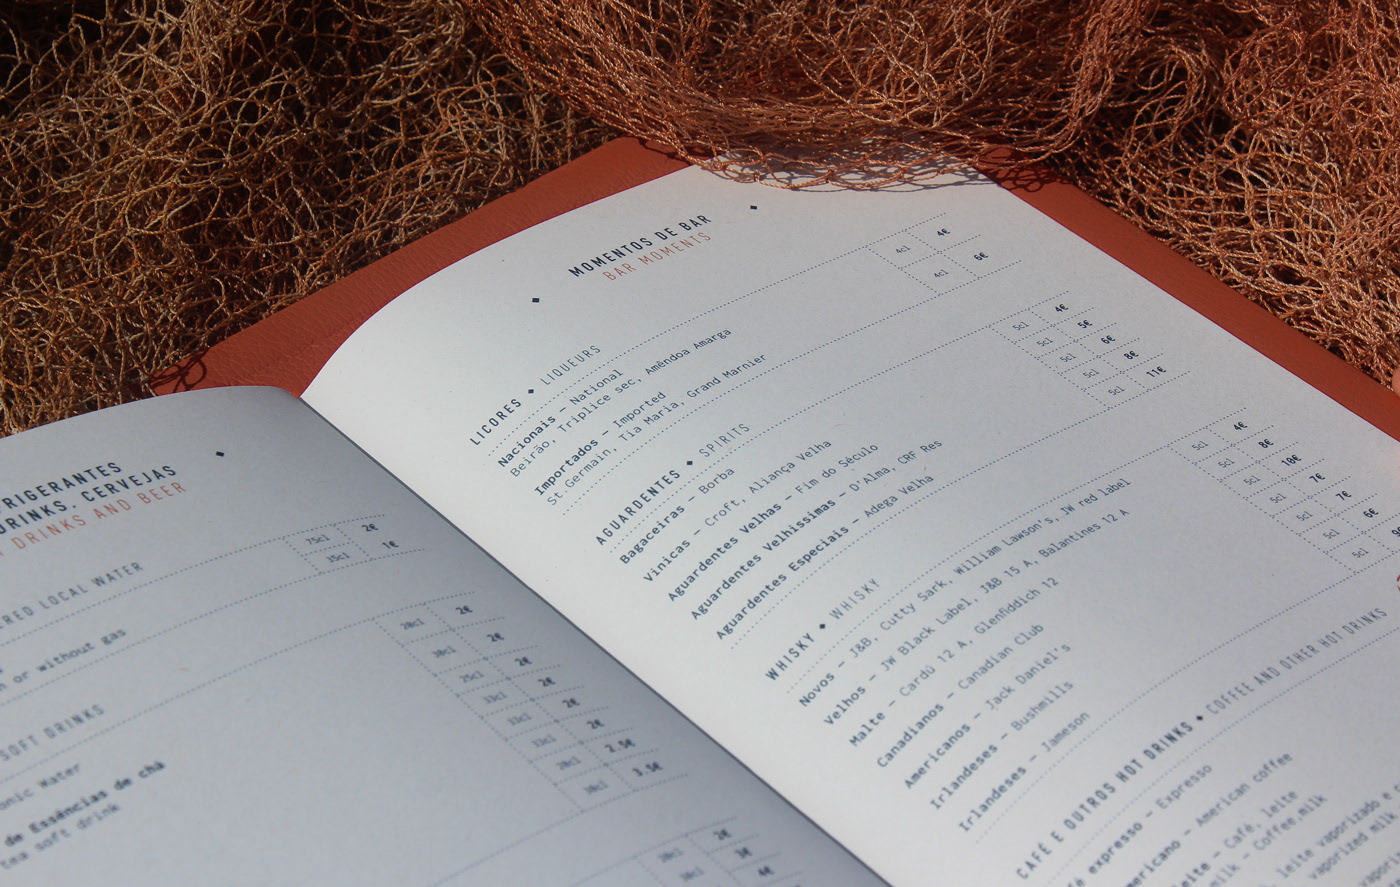 DRINKS, CERVEJAS
DRINKS AND BEER
LOCAL WATER
75cl 2€
35cl 1€
or without gas
SOFT DRINKS
20cl 2€
30cl 2€
25cl 2€
33cl 2€
33cl 2€
33cl 2€
20cl 2.5€
20cl 3.5€
Water
de Essências de chá
tea soft drink
20cl 2€
3€
4€
MOMENTOS DE BAR
BAR MOMENTS
LICORES ◆ LIQUEURS
Nacionais – National 4cl 4€
Beirão, Triplice sec, Amêndoa Amarga
Importados – Imported 4cl 6€
St Germain, Tia Maria, Grand Marnier
AGUARDENTES ◆ SPIRITS
Bagaceiras – Borba 5cl 4€
Vinicas – Croft, Aliança Velha 5cl 5€
Aguardentes Velhas – Fim do Século 5cl 6€
Aguardentes Velhissimas – D'Alma, CRF Res 5cl 8€
Aguardentes Especiais – Adega Velha 5cl 11€
WHISKY ◆ WHISKY
Novos – J&B, Cutty Sark, William Lawson's, JW red label 5cl 4€
Velhos – JW Black Label, J&B 15 A, Balantines 12 A 5cl 8€
Malte – Cardü 12 A, Glenfiddich 12 5cl 10€
Canadianos – Canadian Club 5cl 7€
Americanos – Jack Daniel's 5cl 7€
Irlandeses – Bushmills 5cl 6€
Irlandeses – Jameson 5cl
CAFÉ E OUTROS HOT DRINKS ◆ COFFEE AND OTHER HOT DRINKS
expresso – Expresso
– American coffee
– Café, leite
milk – Coffee,milk
leite vaporizado e
vaporized milk